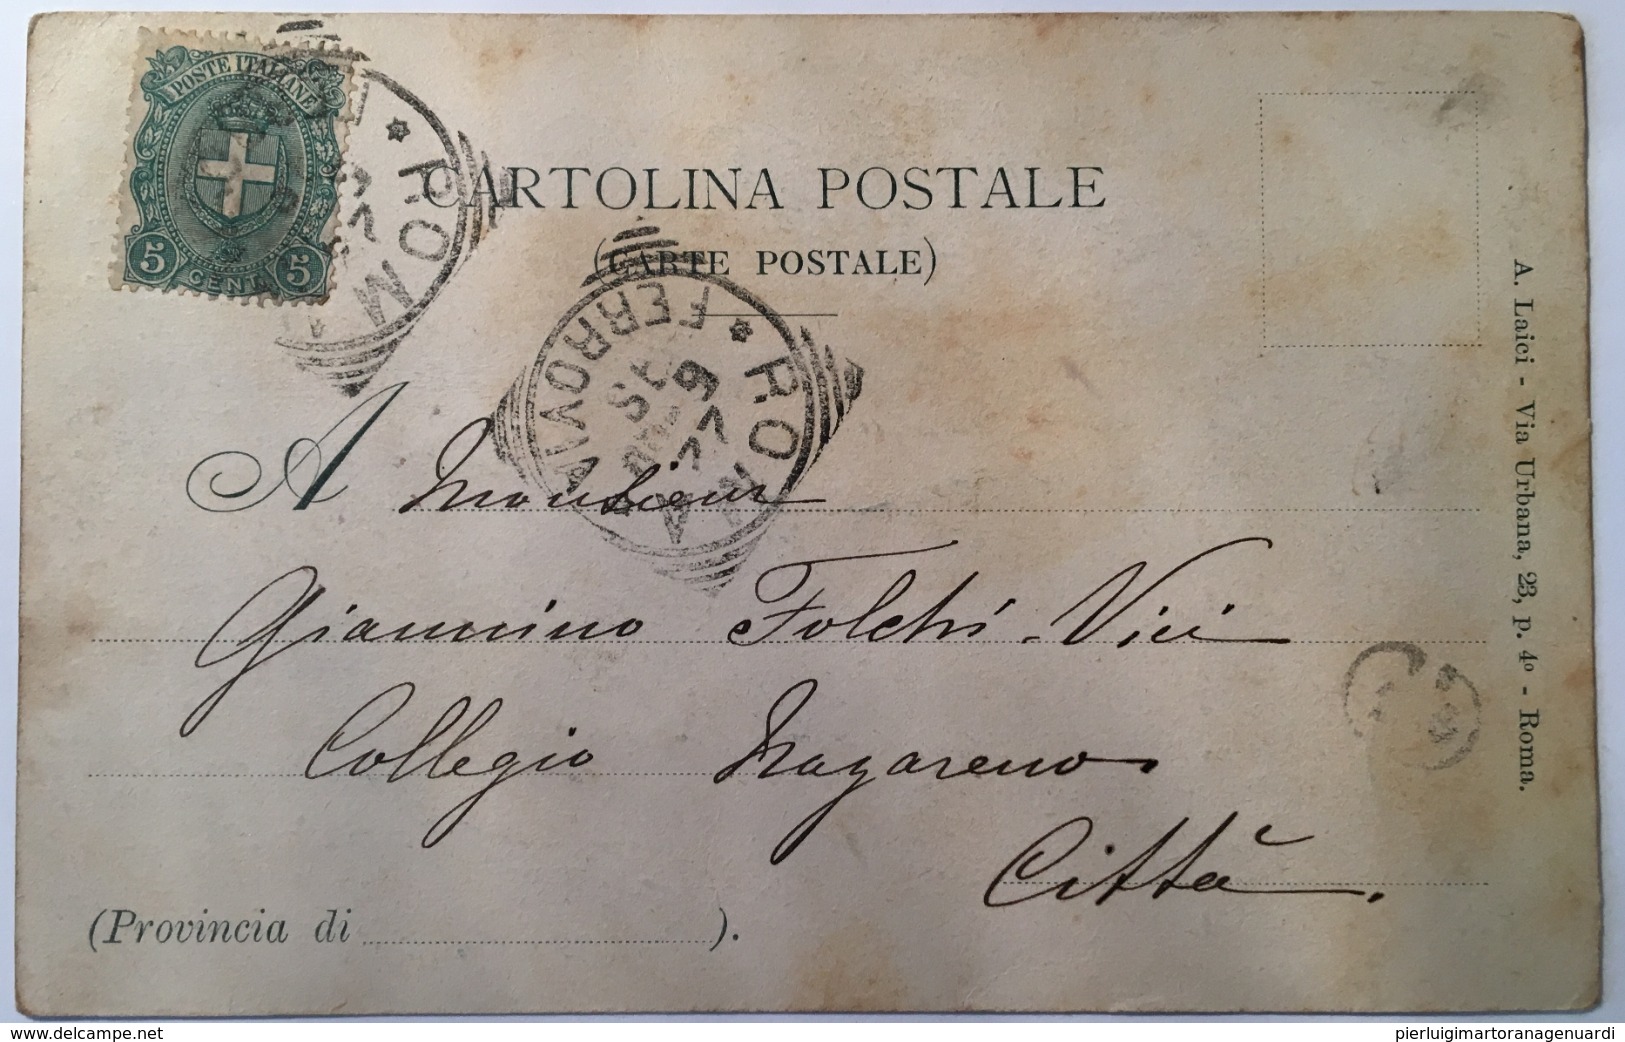 POSTE ITALIANE
5 CENT. 5
ROMA
CARTOLINA POSTALE
(CARTE POSTALE)
ROMA
FERROVIA
A Monsieur
Giannino Folchi-Vici
Collegio Nazareno
Città.
(Provincia di ).
A. Laici - Via Urbana, 23, p. 4º - Roma.
www.delcampe.net
pierluigimartoranagenuardi